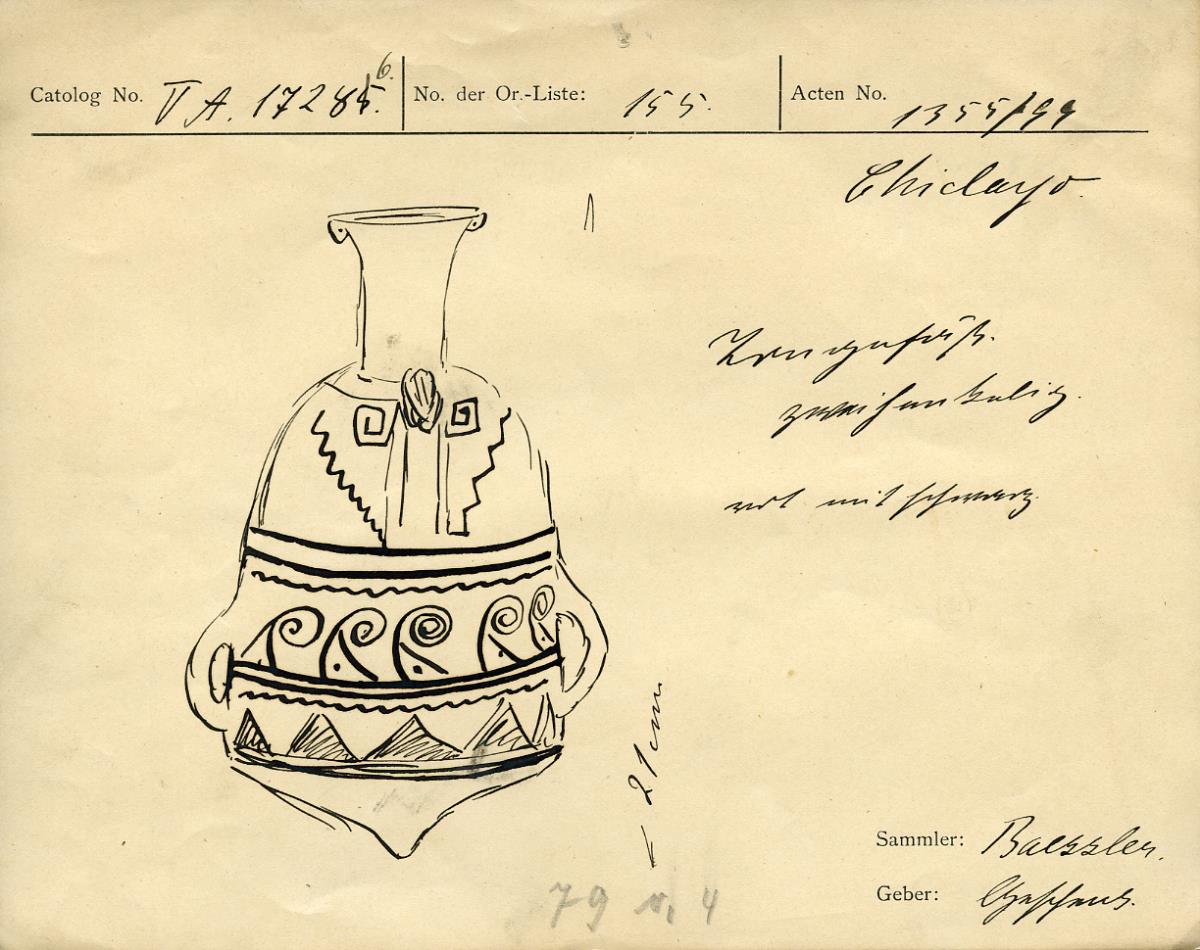 Catolog No. V A. 17286.
No. der Or.-Liste: 155.
Acten No. 1355/99
Chiclayo.
Tongefäß.
zweihenkelig.
rot mit schwarz
21 cm
Sammler: Baessler.
Geber: Geschenk.
79 v. 4